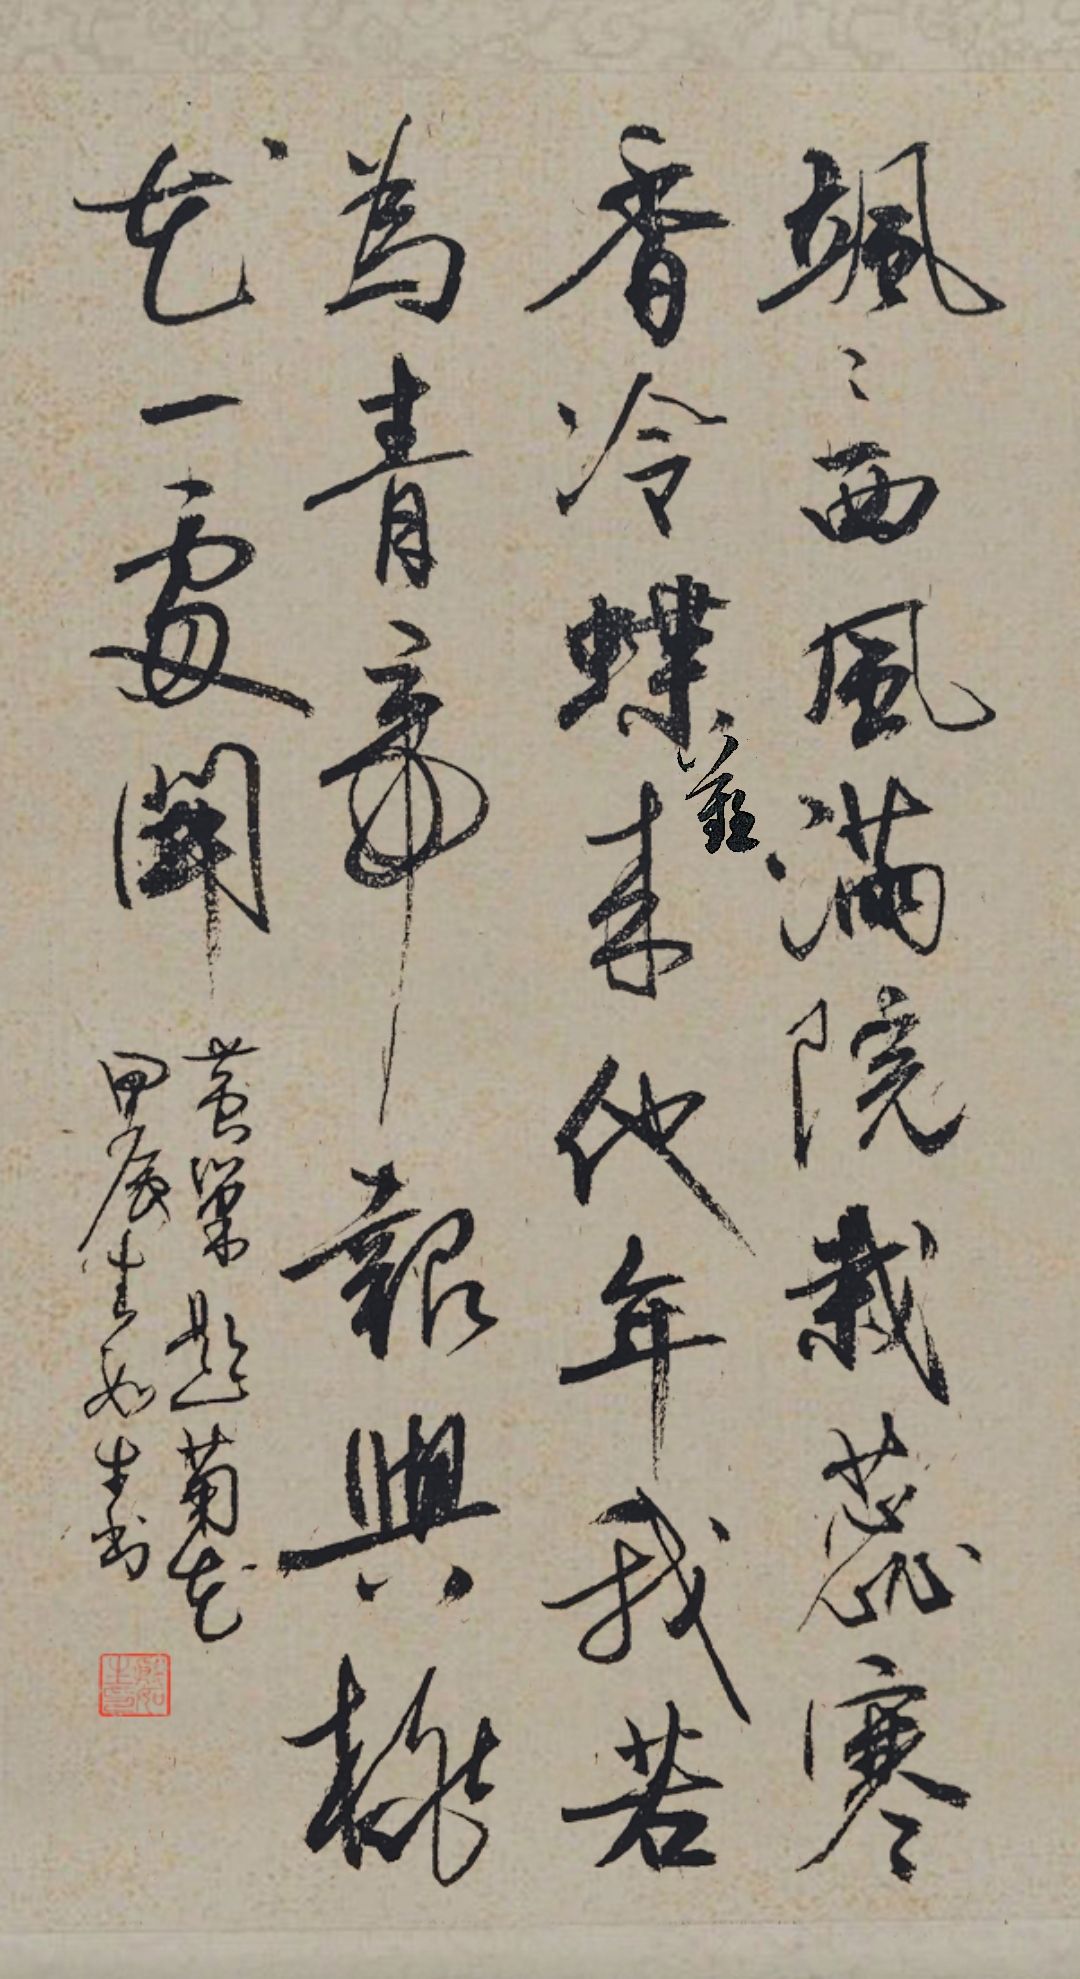 颯〻西風滿院栽蕊寒
香冷蝶難來他年我若
為青帝報與桃
花一處開
黃巢題菊花
甲辰春如生書